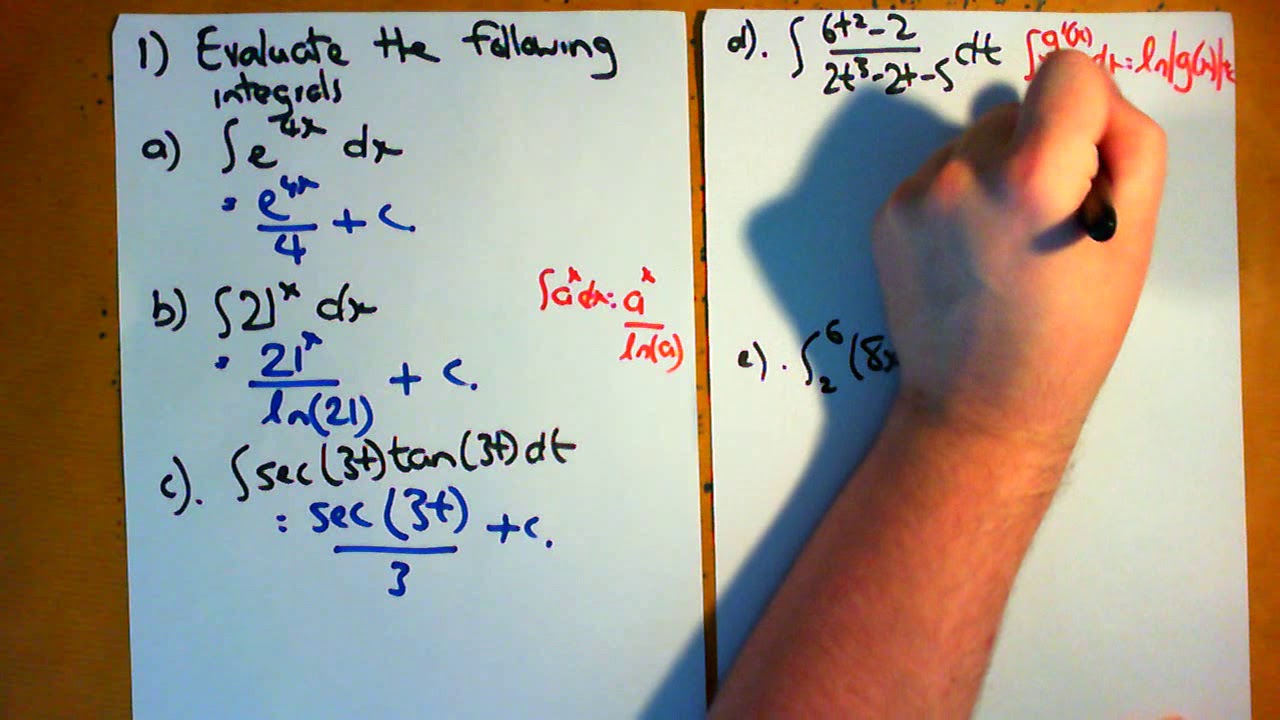 1) Evaluate the following
integrals
a) ∫ e^{4x} dx
= e^{4x}/4 + c.
b) ∫ 21^x dx
= 21^x/ln(21) + c.
∫ a^x dx = a^x/ln(a)
c). ∫ sec(3t) tan(3t) dt
= sec(3t)/3 + c.
d). ∫ (6t² - 2)/(2t³ - 2t - 5) dt
∫ g'(x) dx = ln|g(x)| +
e). ∫₂⁶ (8x